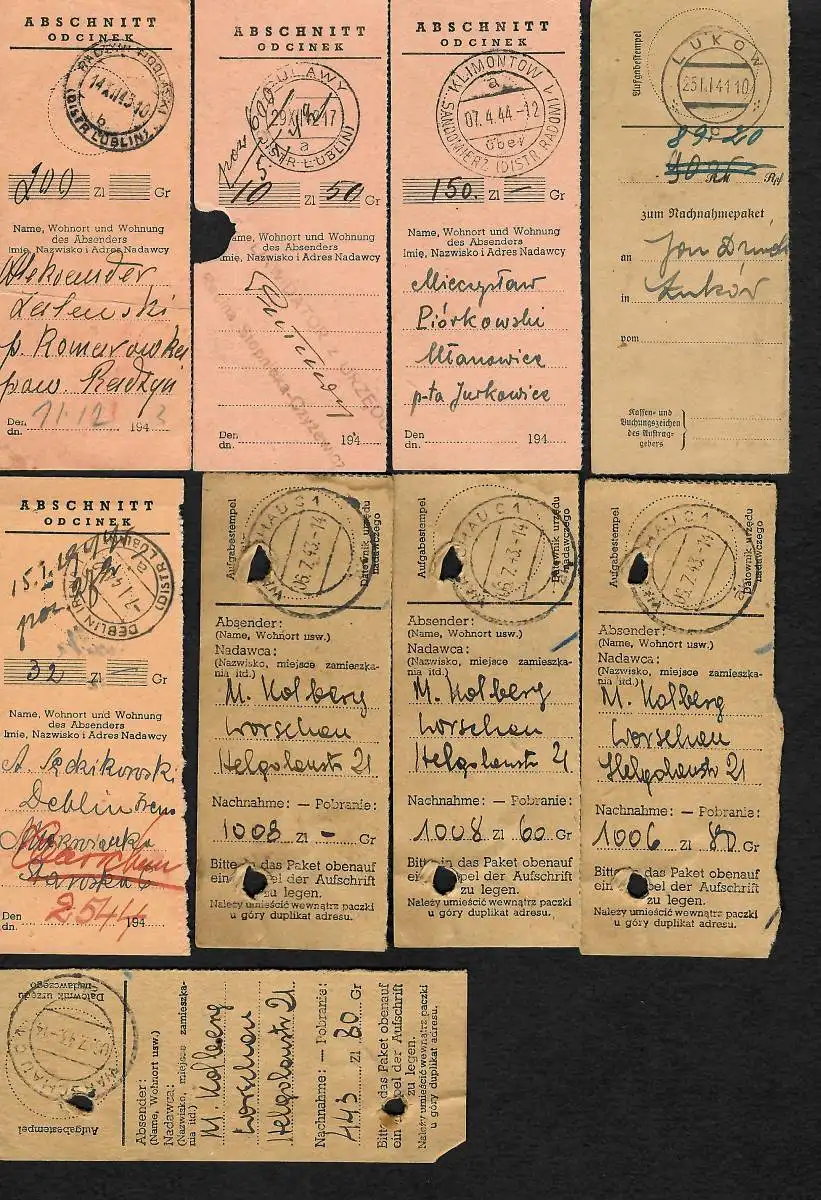 ABSCHNITT
ODCINEK
(DISTR. LUBLIN)
200 Zl Gr
Name, Wohnort und Wohnung
des Absenders
Imię, Nazwisko i Adres Nadawcy
pow. Radzyn
Den
dn. 11.12 194
ABSCHNITT
ODCINEK
PULAWY
(DISTR. LUBLIN)
a
10 Zl 50 Gr
Name, Wohnort und Wohnung
des Absenders
Imię, Nazwisko i Adres Nadawcy
Den
dn. 194
ABSCHNITT
ODCINEK
KLIMONTOW
a
07.4.44.-12
über
SANDOMIERZ (DISTR. RADOM)
150. Zl — Gr
Name, Wohnort und Wohnung
des Absenders
Imię, Nazwisko i Adres Nadawcy
Mieczysław
Piórkowski
Ułanowice
p-ta Jurkowice
Den
dn. 194
Aufgabestempel
LUKOW
25.1.41 10
89 20
RM Rpf
zum Nachnahmepaket
an Jan
in Łuków
vom
Kassen- und
Buchungszeichen
des Auftrag-
gebers
ABSCHNITT
ODCINEK
15.I.1944
DEBLIN
32 Zl — Gr
Name, Wohnort und Wohnung
des Absenders
Imię, Nazwisko i Adres Nadawcy
Deblin Irena
Den 2544
dn. 194
Aufgabestempel
Datownik urzędu
nadawczego
WARSCHAU C 1
05.7.43.-14
Absender:
(Name, Wohnort usw.)
Nadawca:
(Nazwisko, miejsce zamieszka-
nia itd.)
M. Kolberg
Worschau
Helgolanstr 21
Nachnahme: — Pobranie:
1008 Zl - Gr
Bitte in das Paket obenauf
ein pel der Aufschrift
zu legen.
Należy umieścić wewnątrz paczki
u góry duplikat adresu.
Aufgabestempel
Datownik urzędu
nadawczego
WARSCHAU C 1
05.7.43.-14
Absender:
(Name, Wohnort usw.)
Nadawca:
(Nazwisko, miejsce zamieszka-
nia itd.)
M. Kolberg
Worschau
Helgolanstr 21
Nachnahme: — Pobranie:
1008 Zl 60 Gr
Bitte in das Paket obenauf
ein pel der Aufschrift
zu legen.
Należy umieścić wewnątrz paczki
u góry duplikat adresu.
Aufgabestempel
Datownik urzędu
nadawczego
WARSCHAU C 1
05.7.43.-14
Absender:
(Name, Wohnort usw.)
Nadawca:
(Nazwisko, miejsce zamieszka-
nia itd.)
M. Kolberg
Worschau
Helgolanstr 21
Nachnahme: — Pobranie:
1006 Zl 80 Gr
Bitte in das Paket obenauf
ein pel der Aufschrift
zu legen.
Należy umieścić wewnątrz paczki
u góry duplikat adresu.
Aufgabestempel
Datownik urzędu
nadawczego
WARSCHAU C 1
05.7.43.-14
Absender:
(Name, Wohnort usw.)
Nadawca:
(Nazwisko, miejsce zamieszka-
nia itd.)
M. Kolberg
Worschau
Helgolanstr 21
Nachnahme: — Pobranie:
443 Zl 80 Gr
Bitte das Paket obenauf
ein pel der Aufschrift
zu legen.
Należy umieścić wewnątrz paczki
u góry duplikat adresu.